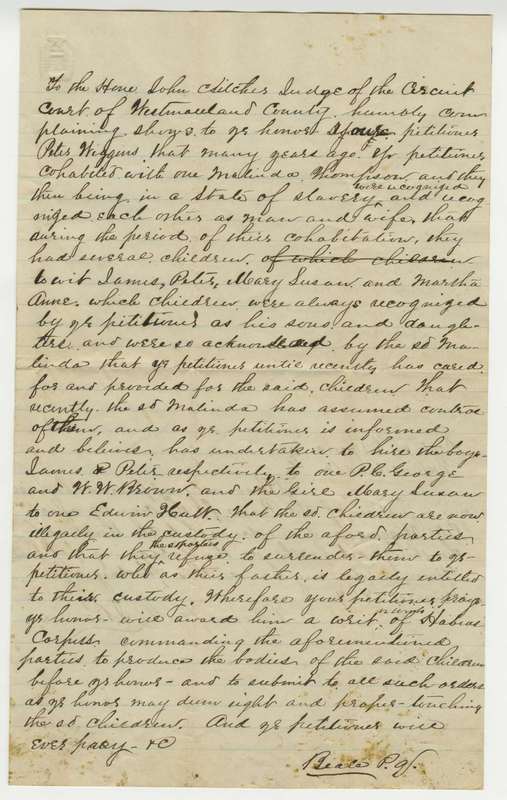 To the Hone John Critcher Judge of the Circuit
Court of Westmoreland County, humbly com
plaining shows to yr honor your petitioner
Peter Wiggins that many years ago yr petitioner
cohabited with one Malinda Thompson and they
then being in a state of slavery were recognized and recog
nized each other as man and wife, that
during the period of their cohabitation, they
had several children of which children
to wit James, Peter, Mary Susan and Martha
Anne. which children were always recognized
by yr petitioner as his sons and daugh-
ters and were so acknowledged by the sd Ma-
linda that yr petitioner until recently has cared
for and provided for the said children that
recently the sd Malinda has assumed control
of them, and as yr petitioner is informed
and believes has undertaken to hire the boys
James & Peter respectively to one P. C. George
and W. W. Brown. and the Girl Mary Susan
to one Edwin Hutt. that the sd children are now
illegally in the custody of the aford parties
and that they the sd parties refuse to surrender them to yr
petitioner who as their father is legally intitled
to their custody. Wherefore your petitioner prays
yr honor will award him a writ or writs of Habeas
Corpuss commanding the aforementioned
parties to produce the bodies of the said children
before yr honor - and to submit to all such orders
as yr honor may dum right and proper touching
the sd children. And yr petitioner will
ever pray - &C
Beale P. Q.